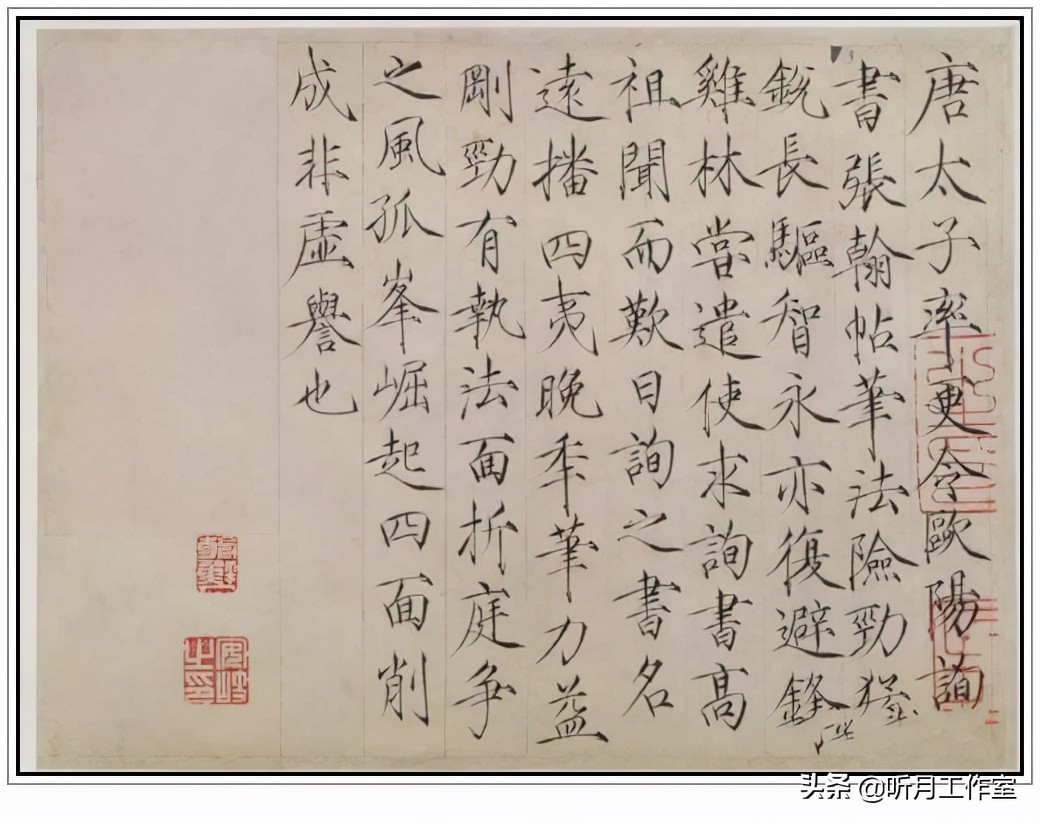 唐太子率更令歐陽詢
書張翰帖筆法險勁猛
銳長驅智永亦復避鋒
雞林嘗遣使求詢書高
祖聞而歎曰詢之書名
遠播四夷晚年筆力益
剛勁有執法面折庭争
之風孤峯崛起四面削
成非虛譽也
安岐之印
头条 @听月工作室